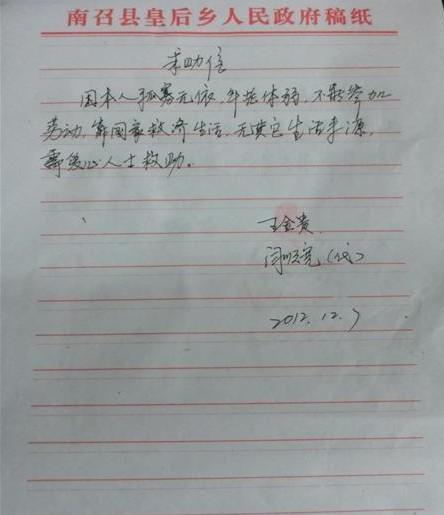 南召县皇后乡人民政府稿纸
求助信
因本人孤寡无依,年老体弱,不能参加
劳动,靠国家救济生活,无其它生活来源,
需爱心人士救助。
王金贵
闫顺亮(代)
2012.12.7